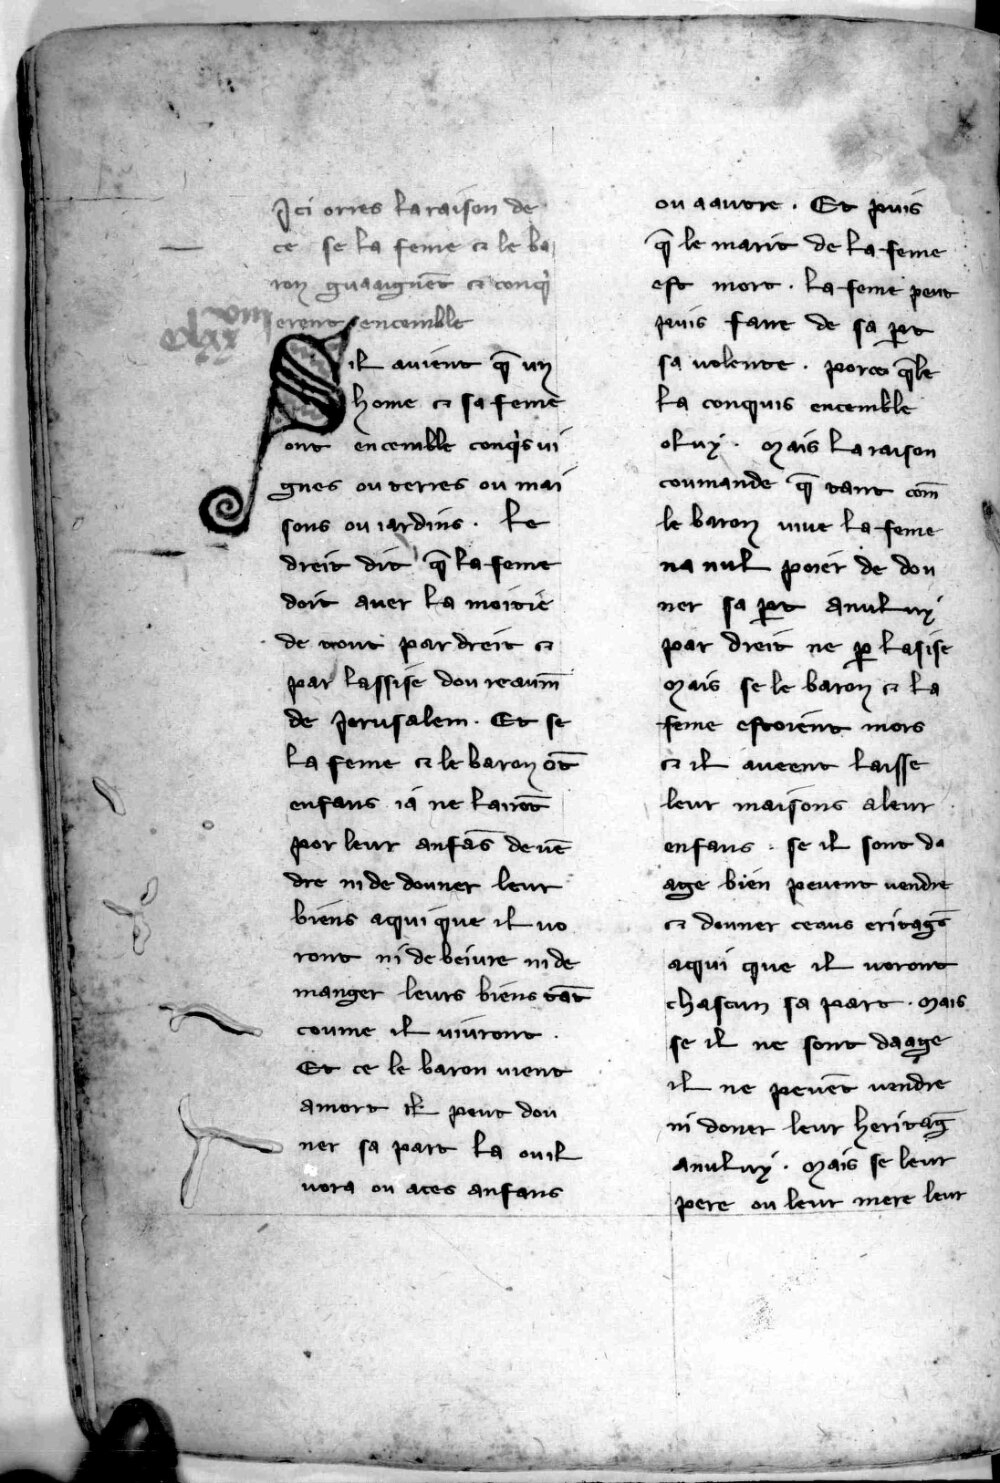 Ici orres la raison de
ce se la feme ⁊ le ba
ron guaaignēt ⁊ conq̍
erent encemble
clxx
Sil auient q̄ un
home ⁊ sa feme
ont encemble conq̍s ui
gnes ou terres ou mai
sons ou iardins . Le
dreit dit q̄ la feme
doit auer la moitie
de tout par dreit ⁊
par lassise dou reaum̄
de Jerusalem . Et se
la feme ⁊ le baron ōt
enfans ia ne lairōt
por leur anfās de uē
dre ni de donner leur
biens a qui que il uo
ront ni de beiure ni de
manger leurs biens tāt
coume il uiuront .
Et ce le baron uient
a mort il peut don
ner sa part la ou il
uora ou a ces anfans
ou a autre . Et puis
q̄ le marit de la feme
est mort . la feme peut
puis faire de sa ꝑt
sa uolente . porce q̄le
la conquis encemble
o luy . Mais la raison
coumande q̄ tant com̄
le baron uiue la feme
na nul poier de don
ner sa ꝑt a nuluy
par dreit ne ꝑ lasise
Mais se le baron ⁊ la
feme estoient mors
⁊ il aueent laisse
leur maisons a leur
enfans . se il sont da
age bien peuent uendre
⁊ donner ceaus eritaḡs
a qui que il uoront
chascun sa part . Mais
se il ne sont da age
il ne peuēt uendre
ni doner leur heritaḡ
a nuluy . Mais se leur
pere ou leur mere leur